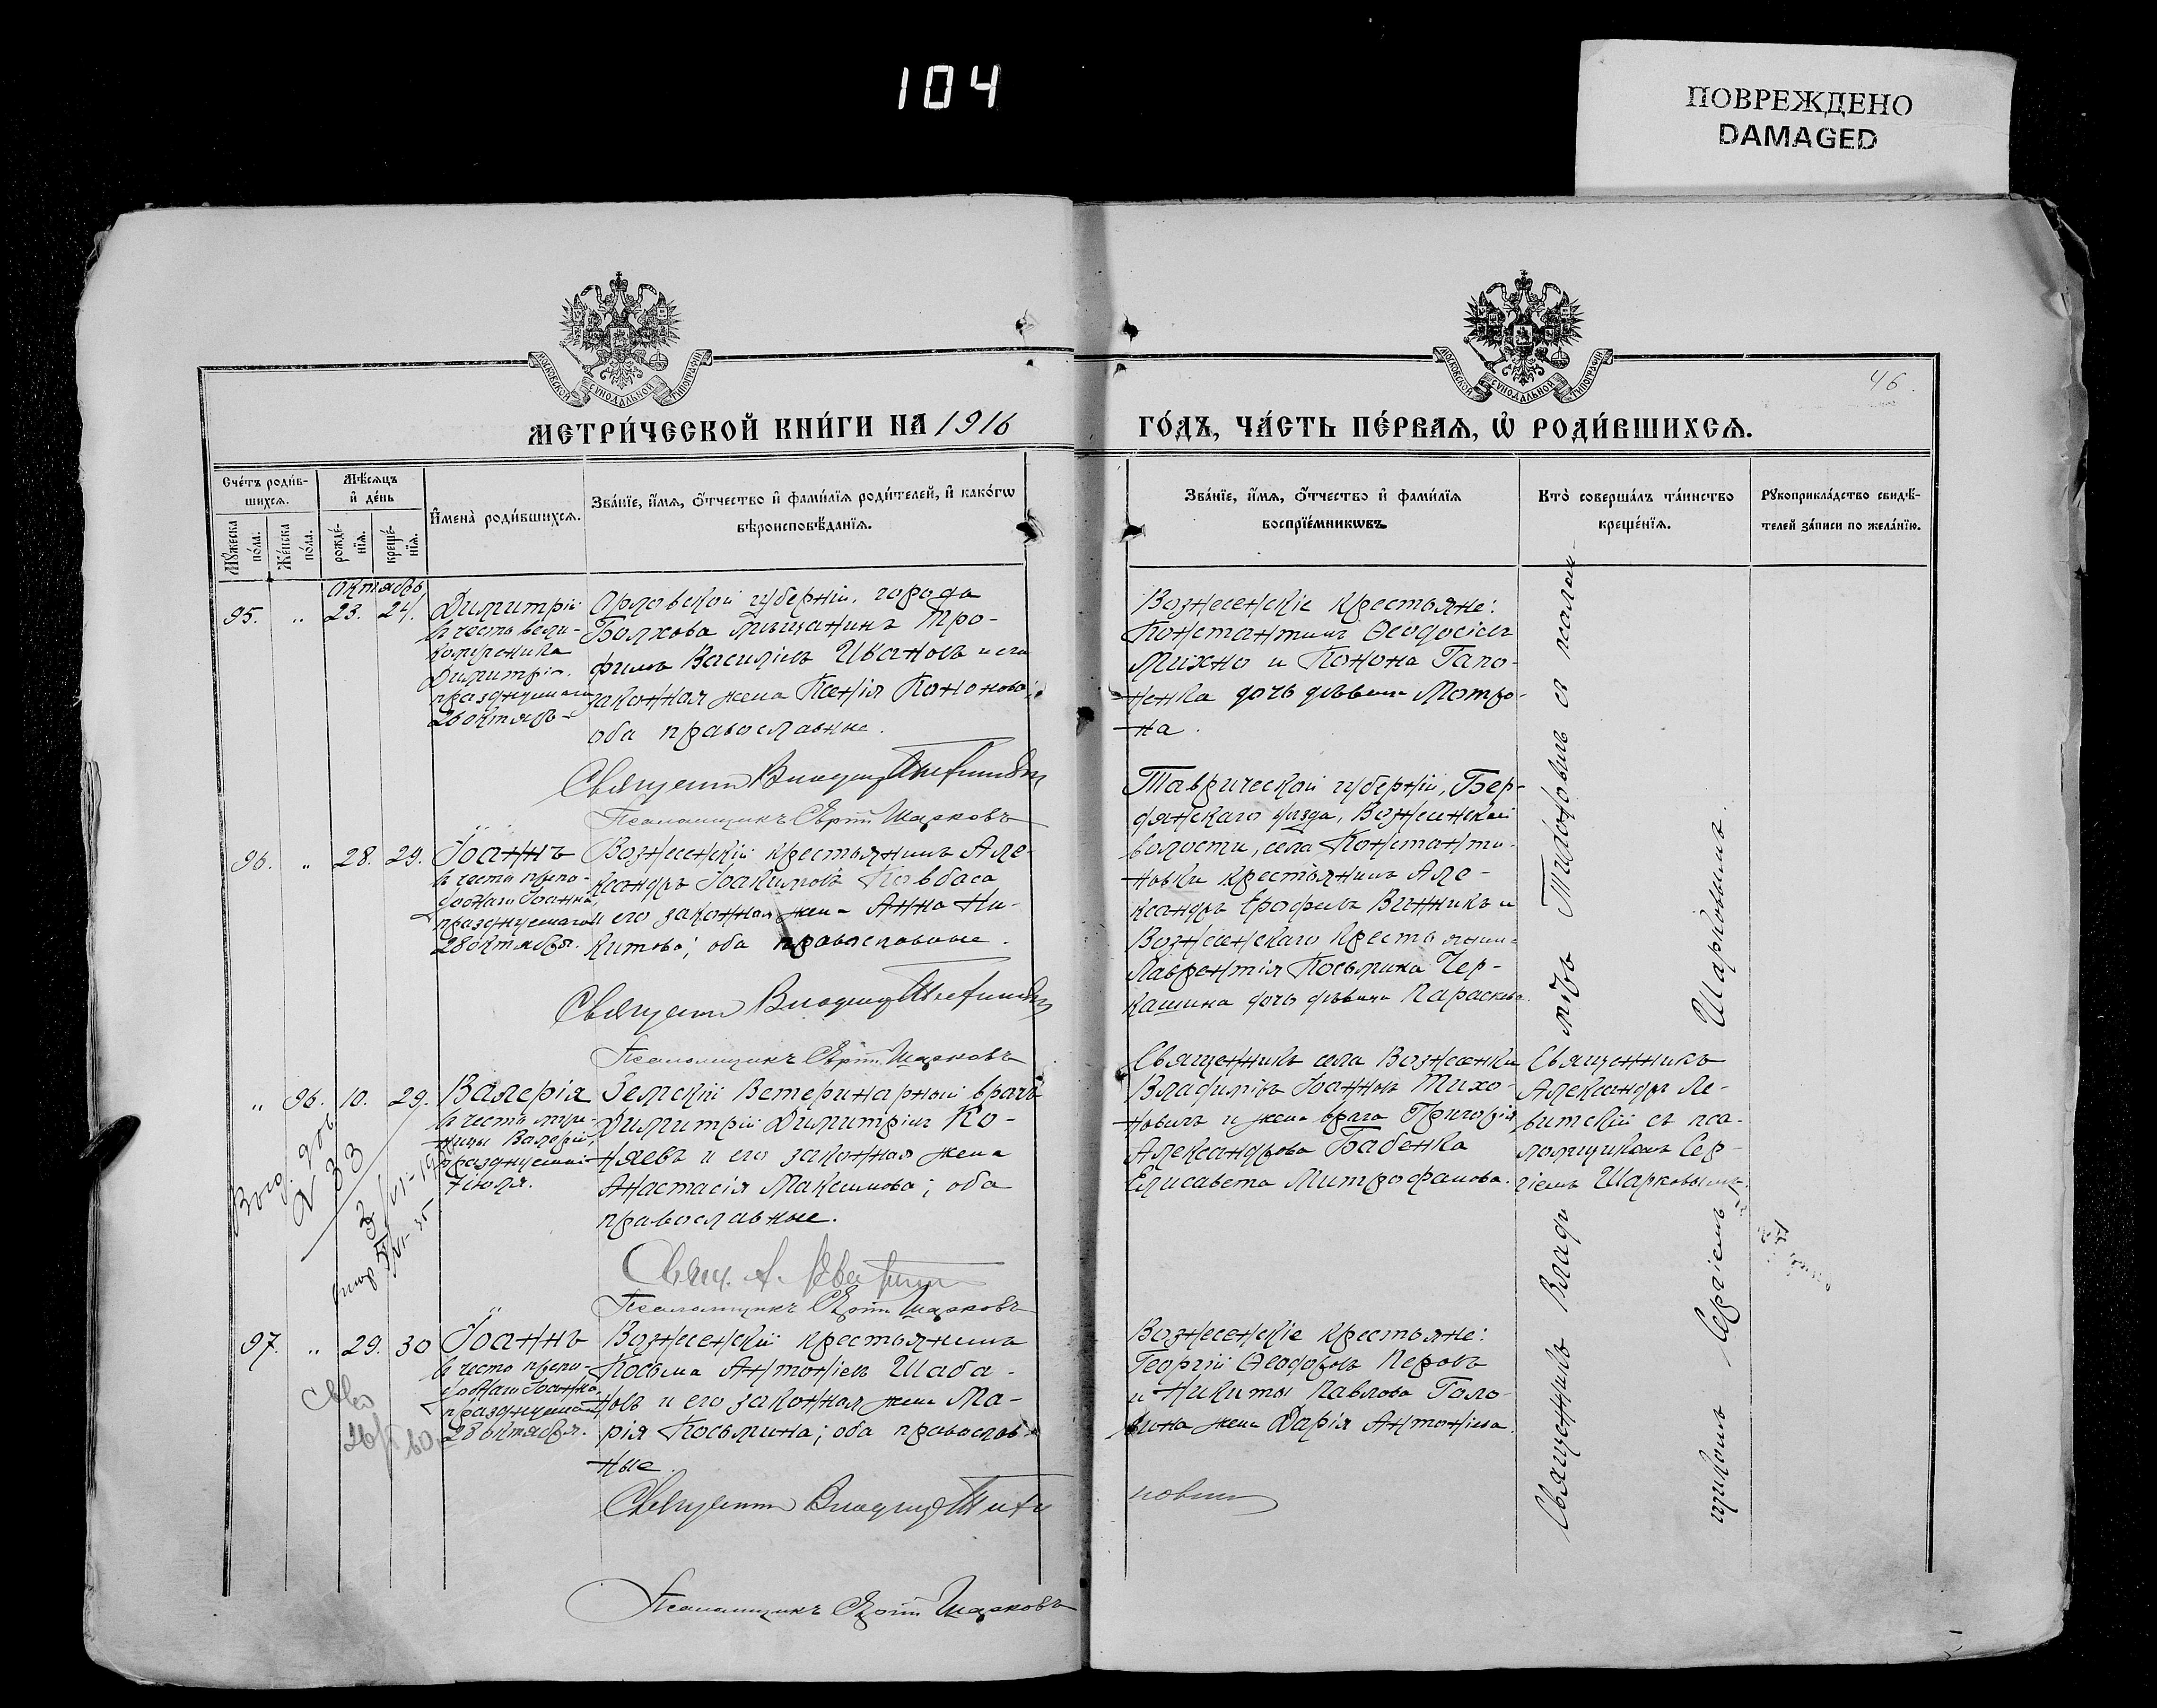 104
ПОВРЕЖДЕНО
DAMAGED
МОСКОВСКОЙ СѴНОДАЛЬНОЙ ТИПОГРАФІИ
МОСКОВСКОЙ СѴНОДАЛЬНОЙ ТИПОГРАФІИ
46
МЕТРИ́ЧЕСКОЙ КНИ́ГИ НА 1916
ГО́ДЪ, ЧА́СТЬ ПЕ́РВАѦ, Ѡ҆ РОДИ́ВШИХСѦ.
Сче́тъ роди́в-
шихсѧ.
Мѣ́сѧцъ
и҆ де́нь
Мꙋ́жеска
по́ла.
Же́нска
по́ла.
рожде́-
нїѧ.
креще́-
нїѧ.
И҆мена̀ роди́вшихсѧ.
Зва́нїе, и҆́мѧ, ѻ҆́тчество и҆ фами́лїѧ роди́телей, и҆ како́гѡ
вѣроисповѣ́данїѧ.
Зва́нїе, и҆́мѧ, ѻ҆́тчество и҆ фами́лїѧ
воспрїе́мникѡвъ.
Кто̀ соверша́лъ та́инство
креще́нїѧ.
Рꙋкоприкла́дство свидѣ́-
телей за́писи по жела́нїю.
Октябрь
95. „ 23. 24.
Димитрій
въ честь вели-
комученика
Димитрія,
празднуемаго
26 октября
Орловской губерніи, города
Болхова мѣщанинъ Тро-
фимъ Василіевъ Ивановъ и его
законная жена Ксенія Кононова;
оба православные.
Священникъ Владиміръ Тихоновичъ
Псаломщикъ Сергій Шарковъ
Вознесенскіе крестьяне:
Константинъ Ѳеодосіевъ
Михно и Конона Гапо-
ненка дочь дѣвица Матро-
на.
96. „ 28. 29.
Іоаннъ
въ честь препо-
добнаго Іоанна,
празднуемаго
28 октября.
Вознесенскій крестьянинъ Але-
ксандръ Іоакимовъ Ковбаса
и его законная жена Анна Ни-
китова; оба православные.
Священникъ Владиміръ Тихоновичъ
Псаломщикъ Сергій Шарковъ
Таврической губерніи, Бер-
дянскаго уѣзда, Вознесенской
волости, села Константи-
новки крестьянинъ Але-
ксандръ Ерофеевъ Винникъ и
Вознесенскаго крестьянина
Лаврентія Косьмина Чер-
кашина дочь дѣвица Параскева.
„ 96. 10. 29.
Валерія
въ честь муче-
ницы Валеріи,
празднуемой
7 іюля.
Земскій Ветеринарный врачъ
Димитрій Димитріевъ Ко-
няевъ и его законная жена
Анастасія Максимова; оба
православные.
Свящ. А. Левитскій
Псаломщикъ Сергій Шарковъ
Священникъ села Вознесенки
Владиміръ Іоанновъ Тихо-
новичъ и жена врача Григорія
Александрова Бабенка
Елисавета Митрофанова.
Священникъ
Александръ Ле-
витскій съ пса-
ломщикомъ Сер-
гіемъ Шарковымъ.
97. „ 29. 30
Іоаннъ
въ честь препо-
добнаго Іоанна,
празднуемаго
28 октября.
Вознесенскій крестьянинъ
Косьма Антоніевъ Шаба-
новъ и его законная жена Ма-
рія Косьмина; оба православ-
ные.
Священникъ Владиміръ Тихо
новичъ
Псаломщикъ Сергій Шарковъ
Вознесенскіе крестьяне:
Георгій Ѳеодоровъ Перовъ
и Никиты Павлова Голо-
вина жена Дарія Антоніева.
Священникъ Владиміръ Тихоновичъ съ псалом
щикомъ Сергіемъ Шарковымъ.